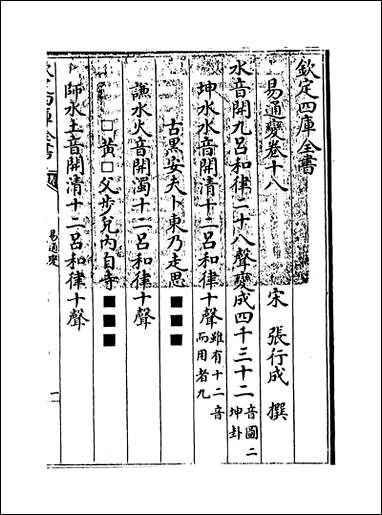 欽定四庫全書
易通變卷十八
宋 張行成 撰
水音開九呂和律二十八聲變成四千三十二音圖二坤卦
坤水水音開清十二呂和律十聲雖有十二音而用者九
古黑安夫卜東乃走思■■■
謙水火音開濁十二呂和律十聲
□黃□父步兌內自寺■■■
師水土音開清十二呂和律十聲
易通變
一